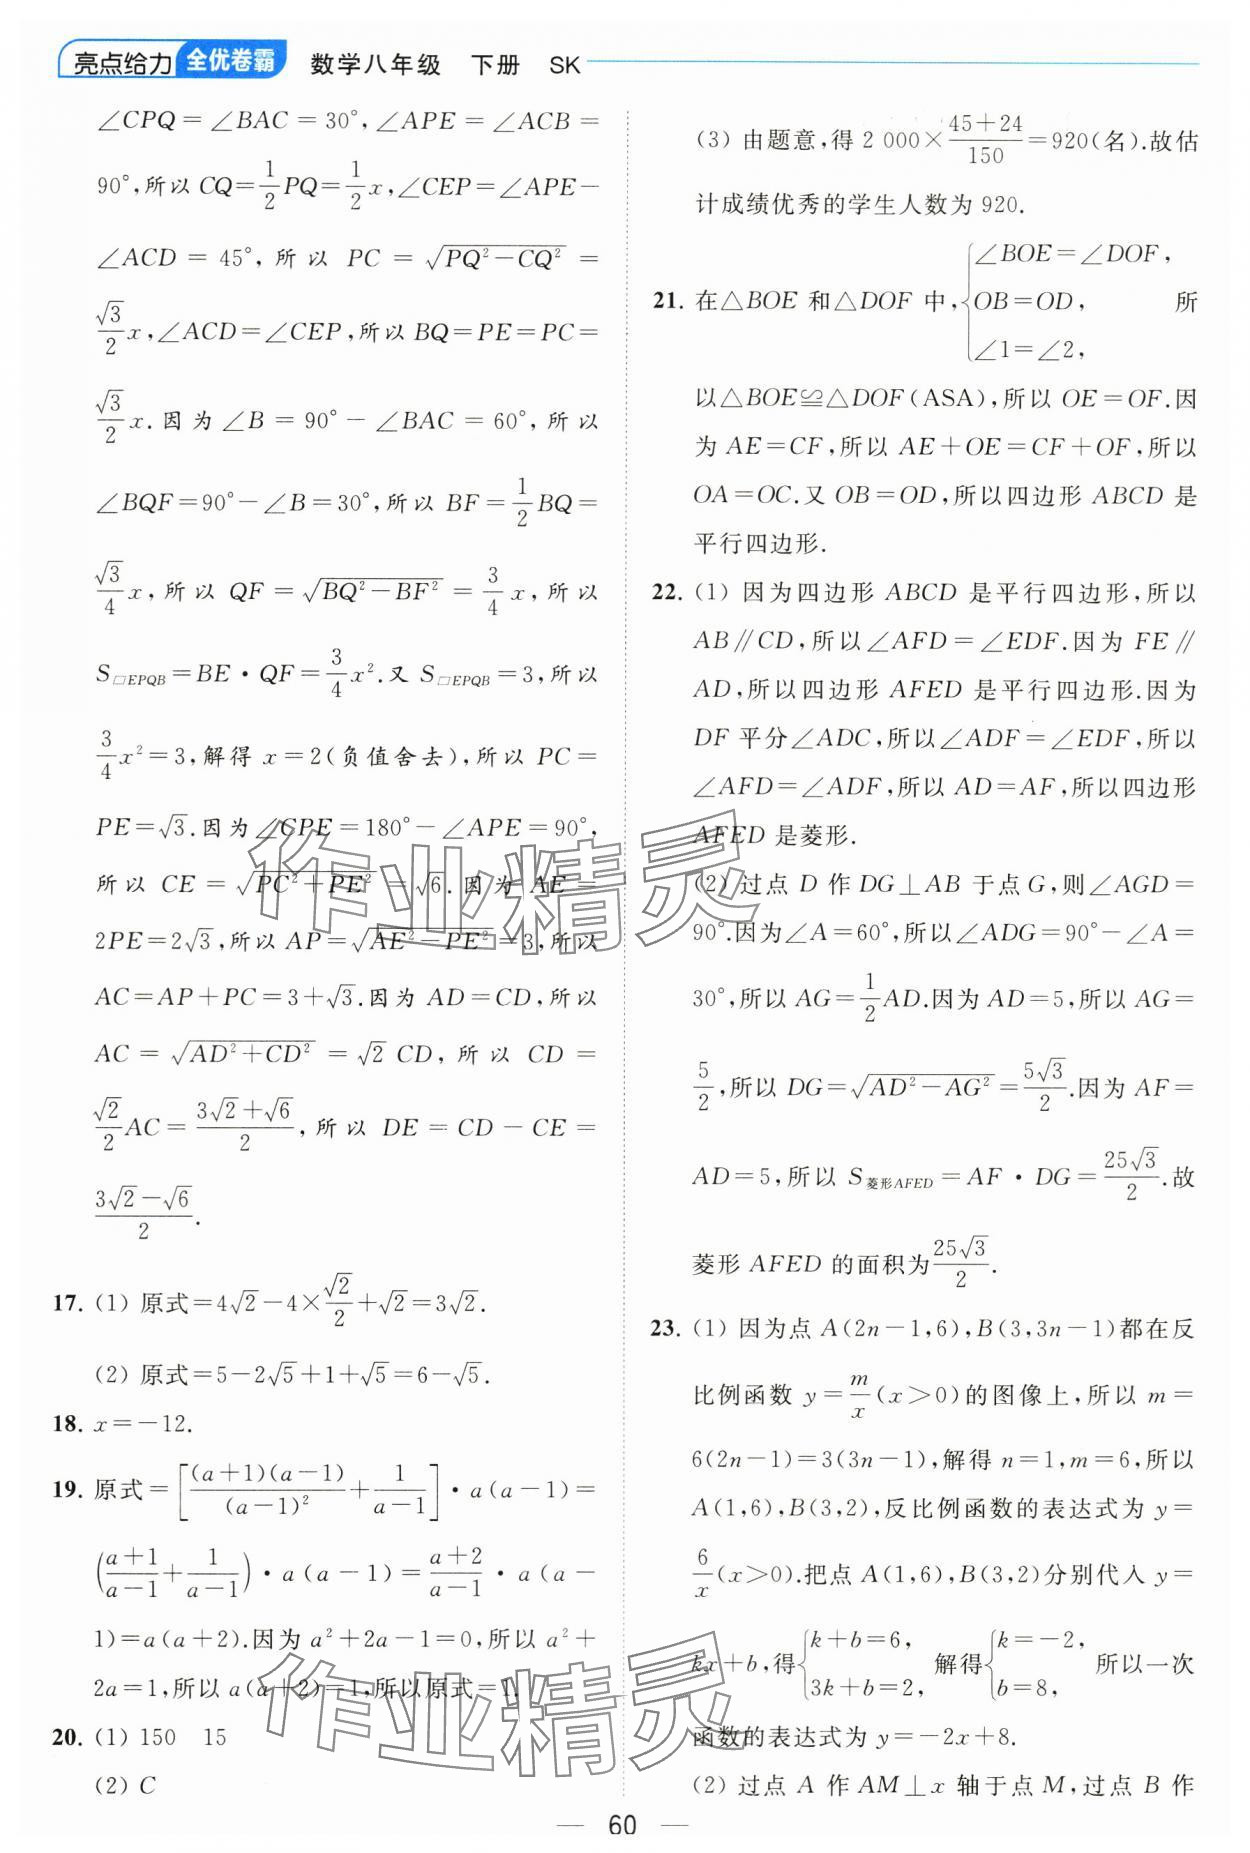 亮点给力 全优卷霸 数学八年级 下册 SK
∠CPQ=∠BAC=30°,∠APE=∠ACB=
90°,所以 CQ=1/2PQ=1/2x,∠CEP=∠APE-
∠ACD=45°,所以 PC=√(PQ²-CQ²)=
√3/2x,∠ACD=∠CEP,所以 BQ=PE=PC=
√3/2x.因为∠B=90°-∠BAC=60°,所以
∠BQF=90°-∠B=30°,所以 BF=1/2BQ=
√3/4x,所以 QF=√(BQ²-BF²)=3/4x,所以
S□EPQB=BE·QF=3/4x².又 S□EPQB=3,所以
3/4x²=3,解得 x=2(负值舍去),所以 PC=
PE=√3.因为∠CPE=180°-∠APE=90°,
所以 CE=√(PC²+PE²)=√6.因为 AE=
2PE=2√3,所以 AP=√(AE²-PE²)=3,所以
AC=AP+PC=3+√3.因为 AD=CD,所以
AC=√(AD²+CD²)=√2 CD,所以 CD=
√2/2AC=(3√2+√6)/2,所以 DE=CD-CE=
(3√2-√6)/2.
17. (1) 原式=4√2-4×√2/2+√2=3√2.
(2) 原式=5-2√5+1+√5=6-√5.
18. x=-12.
19. 原式=[(a+1)(a-1)/(a-1)²+1/(a-1)]·a(a-1)=
((a+1)/(a-1)+1/(a-1))·a(a-1)=(a+2)/(a-1)·a(a-
1)=a(a+2).因为 a²+2a-1=0,所以 a²+
2a=1,所以 a(a+2)=1,所以原式=1.
20. (1) 150 15
(2) C
(3) 由题意,得 2 000×(45+24)/150=920(名).故估
计成绩优秀的学生人数为 920.
21. 在△BOE 和△DOF 中,{∠BOE=∠DOF, OB=OD, ∠1=∠2, 所
以△BOE≌△DOF(ASA),所以 OE=OF.因
为 AE=CF,所以 AE+OE=CF+OF,所以
OA=OC.又 OB=OD,所以四边形 ABCD 是
平行四边形.
22. (1) 因为四边形 ABCD 是平行四边形,所以
AB∥CD,所以∠AFD=∠EDF.因为 FE∥
AD,所以四边形 AFED 是平行四边形.因为
DF 平分∠ADC,所以∠ADF=∠EDF,所以
∠AFD=∠ADF,所以 AD=AF,所以四边形
AFED 是菱形.
(2) 过点 D 作 DG⊥AB 于点 G,则∠AGD=
90°.因为∠A=60°,所以∠ADG=90°-∠A=
30°,所以 AG=1/2AD.因为 AD=5,所以 AG=
5/2,所以 DG=√(AD²-AG²)=5√3/2.因为 AF=
AD=5,所以 S菱形AFED=AF·DG=25√3/2.故
菱形 AFED 的面积为25√3/2.
23. (1) 因为点 A(2n-1,6),B(3,3n-1)都在反
比例函数 y=m/x(x>0)的图像上,所以 m=
6(2n-1)=3(3n-1),解得 n=1,m=6,所以
A(1,6),B(3,2),反比例函数的表达式为 y=
6/x(x>0).把点 A(1,6),B(3,2)分别代入 y=
kx+b,得{k+b=6, 3k+b=2, 解得{k=-2, b=8, 所以一次
函数的表达式为 y=-2x+8.
(2) 过点 A 作 AM⊥x 轴于点 M,过点 B 作
作业精灵
作业精灵
— 60 —